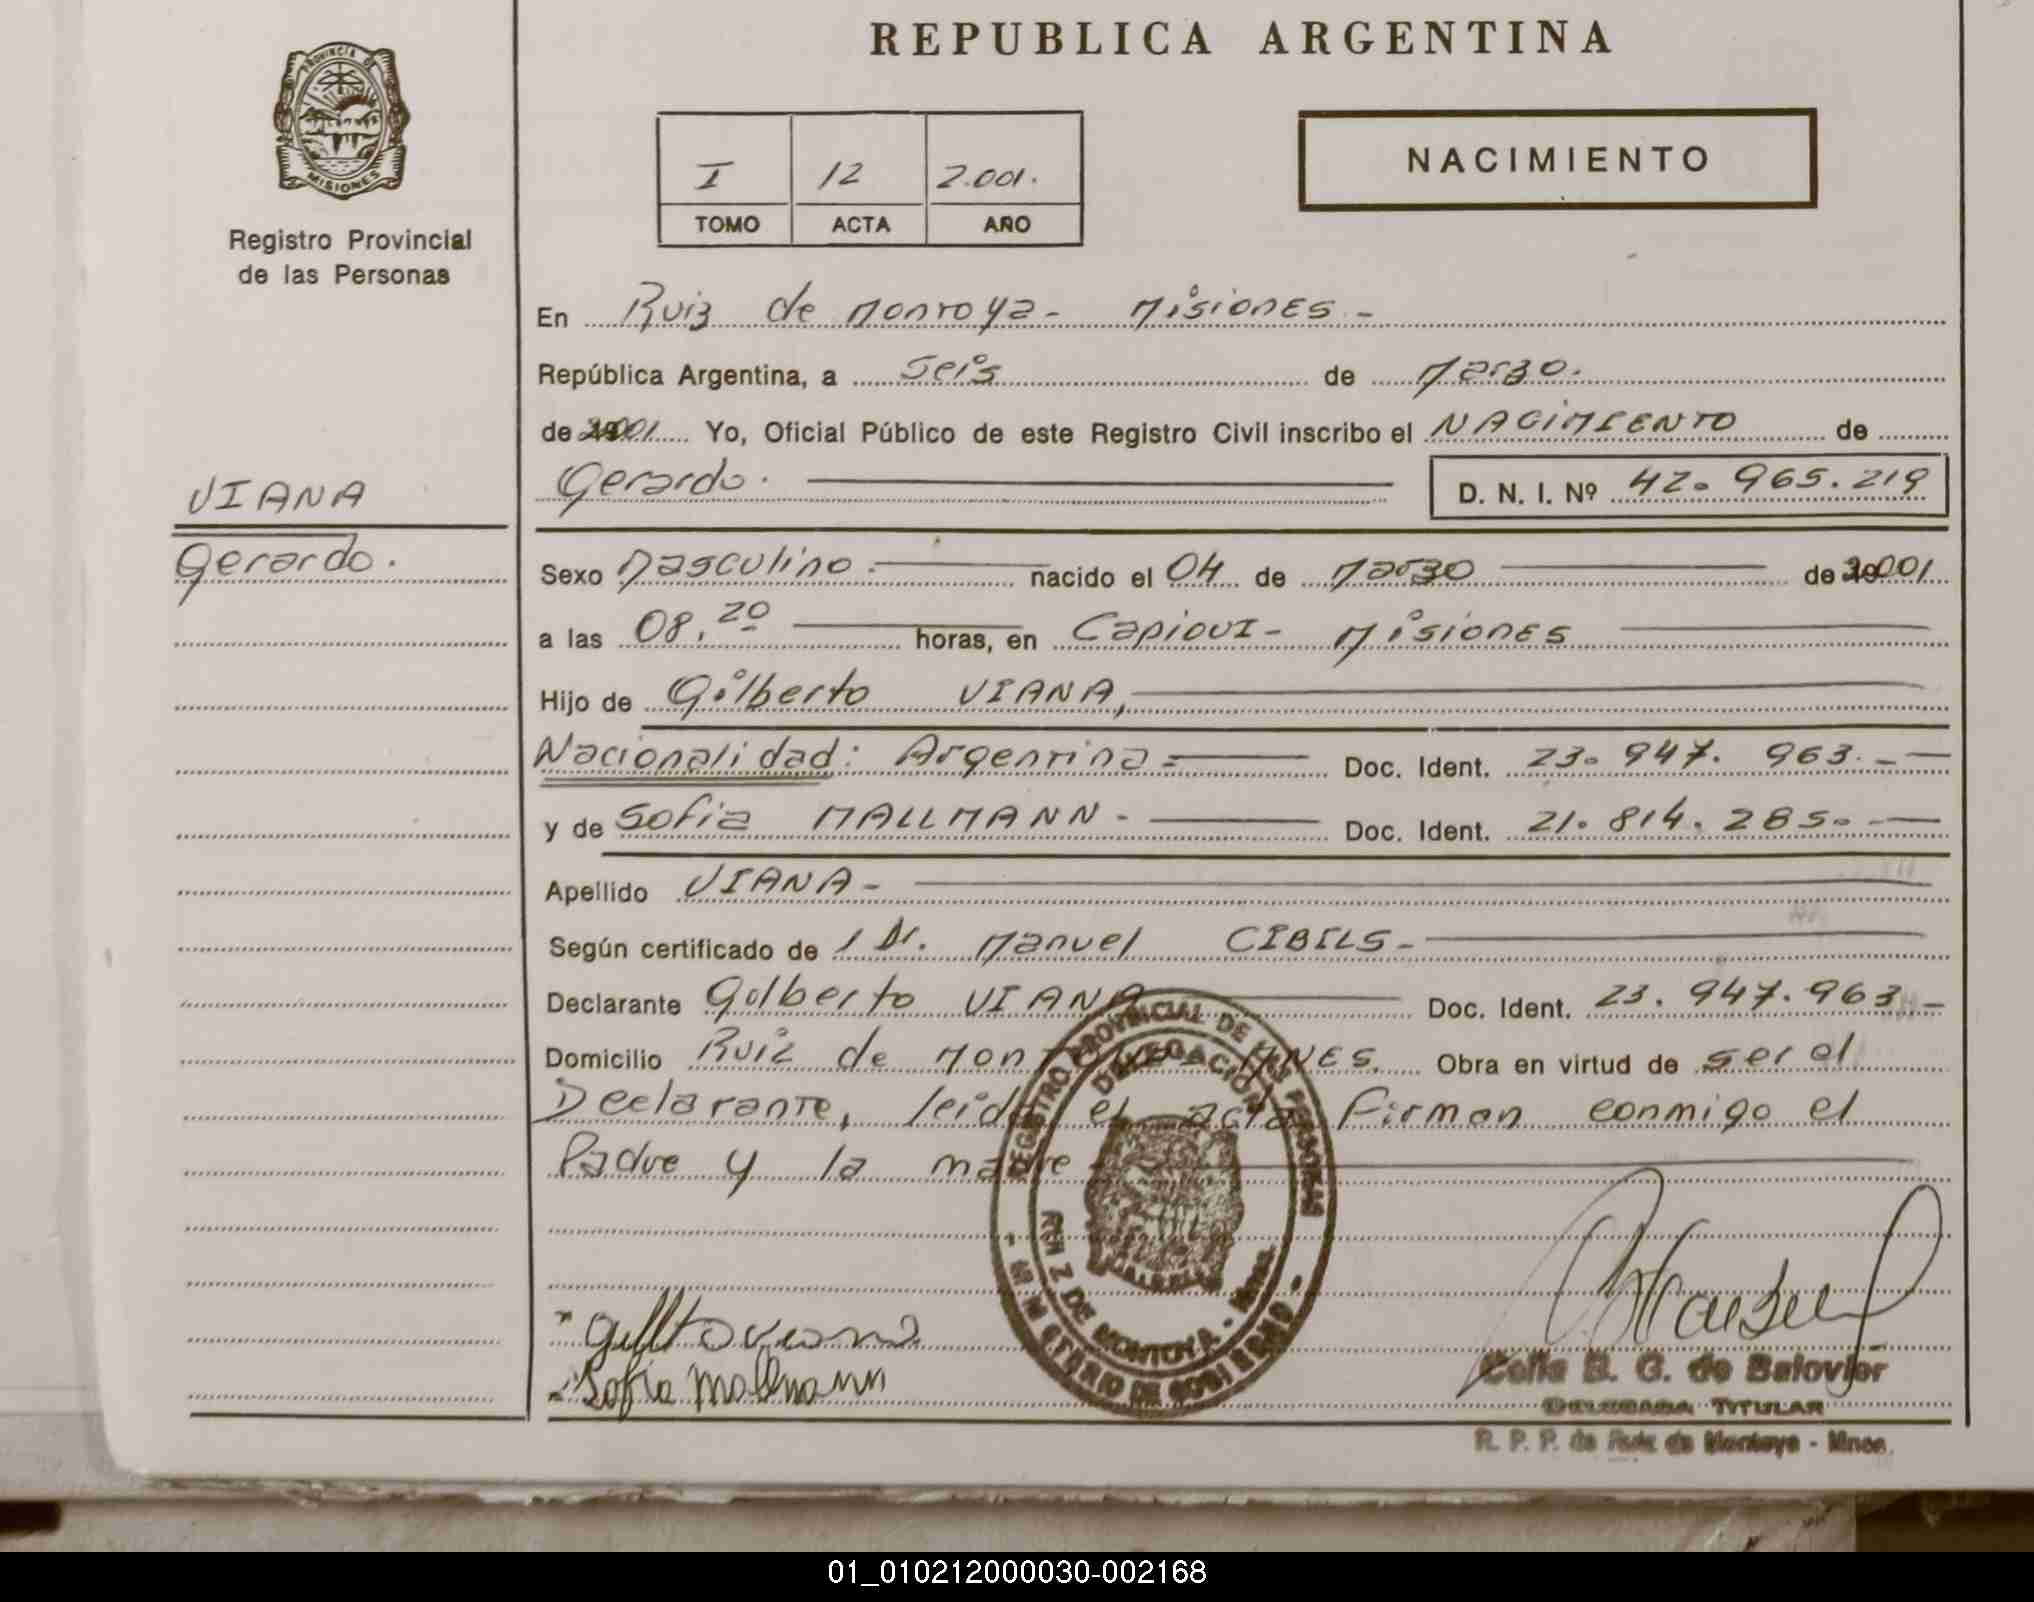 REPUBLICA ARGENTINA
PROVINCIA DE
MISIONES
Registro Provincial
de las Personas
I 12 2.001.
TOMO ACTA AÑO
NACIMIENTO
En Ruiz de Montoya - Misiones -
República Argentina, a Seis de Marzo.
de 2001 Yo, Oficial Público de este Registro Civil inscribo el NACIMIENTO de
Gerardo. D. N. I. Nº 42.965.219
VIANA
Gerardo.
Sexo Masculino. nacido el 04 de Marzo de 2001
a las 08,20 horas, en Capiovi - Misiones
Hijo de Gilberto VIANA,
Nacionalidad: Argentina = Doc. Ident. 23.947.963. -
y de Sofia MALLMANN - Doc. Ident. 21.814.285. -
Apellido VIANA -
Según certificado de 1 Dr. Manuel CIBILS -
Declarante Gilberto VIANA Doc. Ident. 23.947.963 -
Domicilio Ruiz de Montoya MNES. Obra en virtud de ser el
Declarante, leida el acta firman conmigo el
Padre y la madre
REGISTRO PROVINCIAL DE LAS PERSONAS
DELEGACION
RUIZ DE MONTOYA - Mnes.
- MINISTERIO DE GOBIERNO -
Gilberto Viana
Sofia Mallmann
Celia B. G. de Balovier
DELEGADA TITULAR
R. P. P. de Ruiz de Montoya - Mnes.
01_010212000030-002168